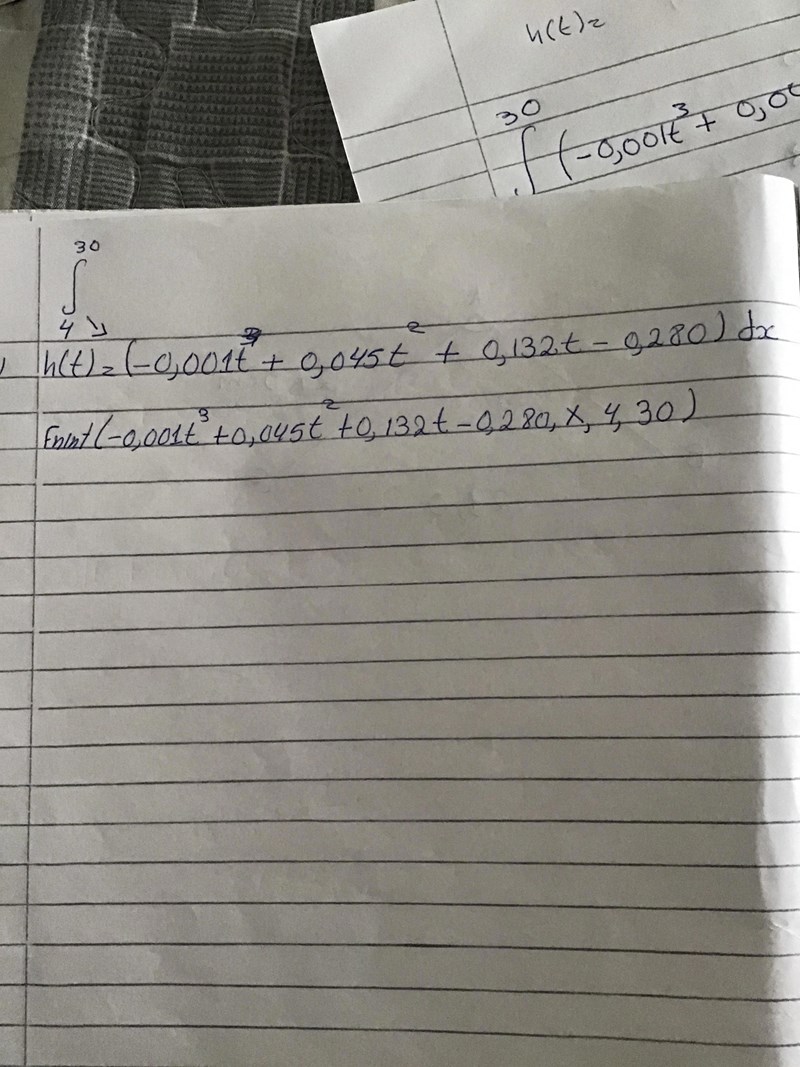 h(t)=
30
∫ (-0,001t³ + 0,0
30
∫
4 ↘
h(t)=(-0,001t³ + 0,045t² + 0,132t - 0,280) dx
Fnint(-0,001t³+0,045t²+0,132t-0,280, X, 4, 30)